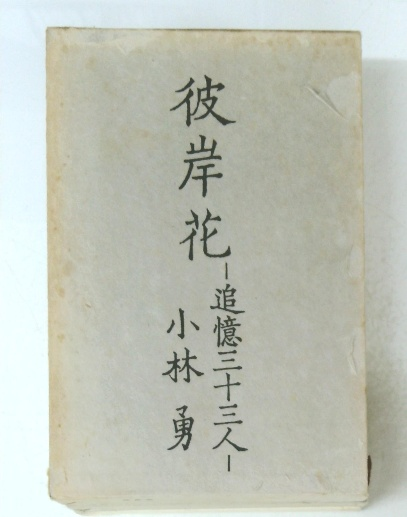 彼岸花
―追憶三十三人―
小林勇